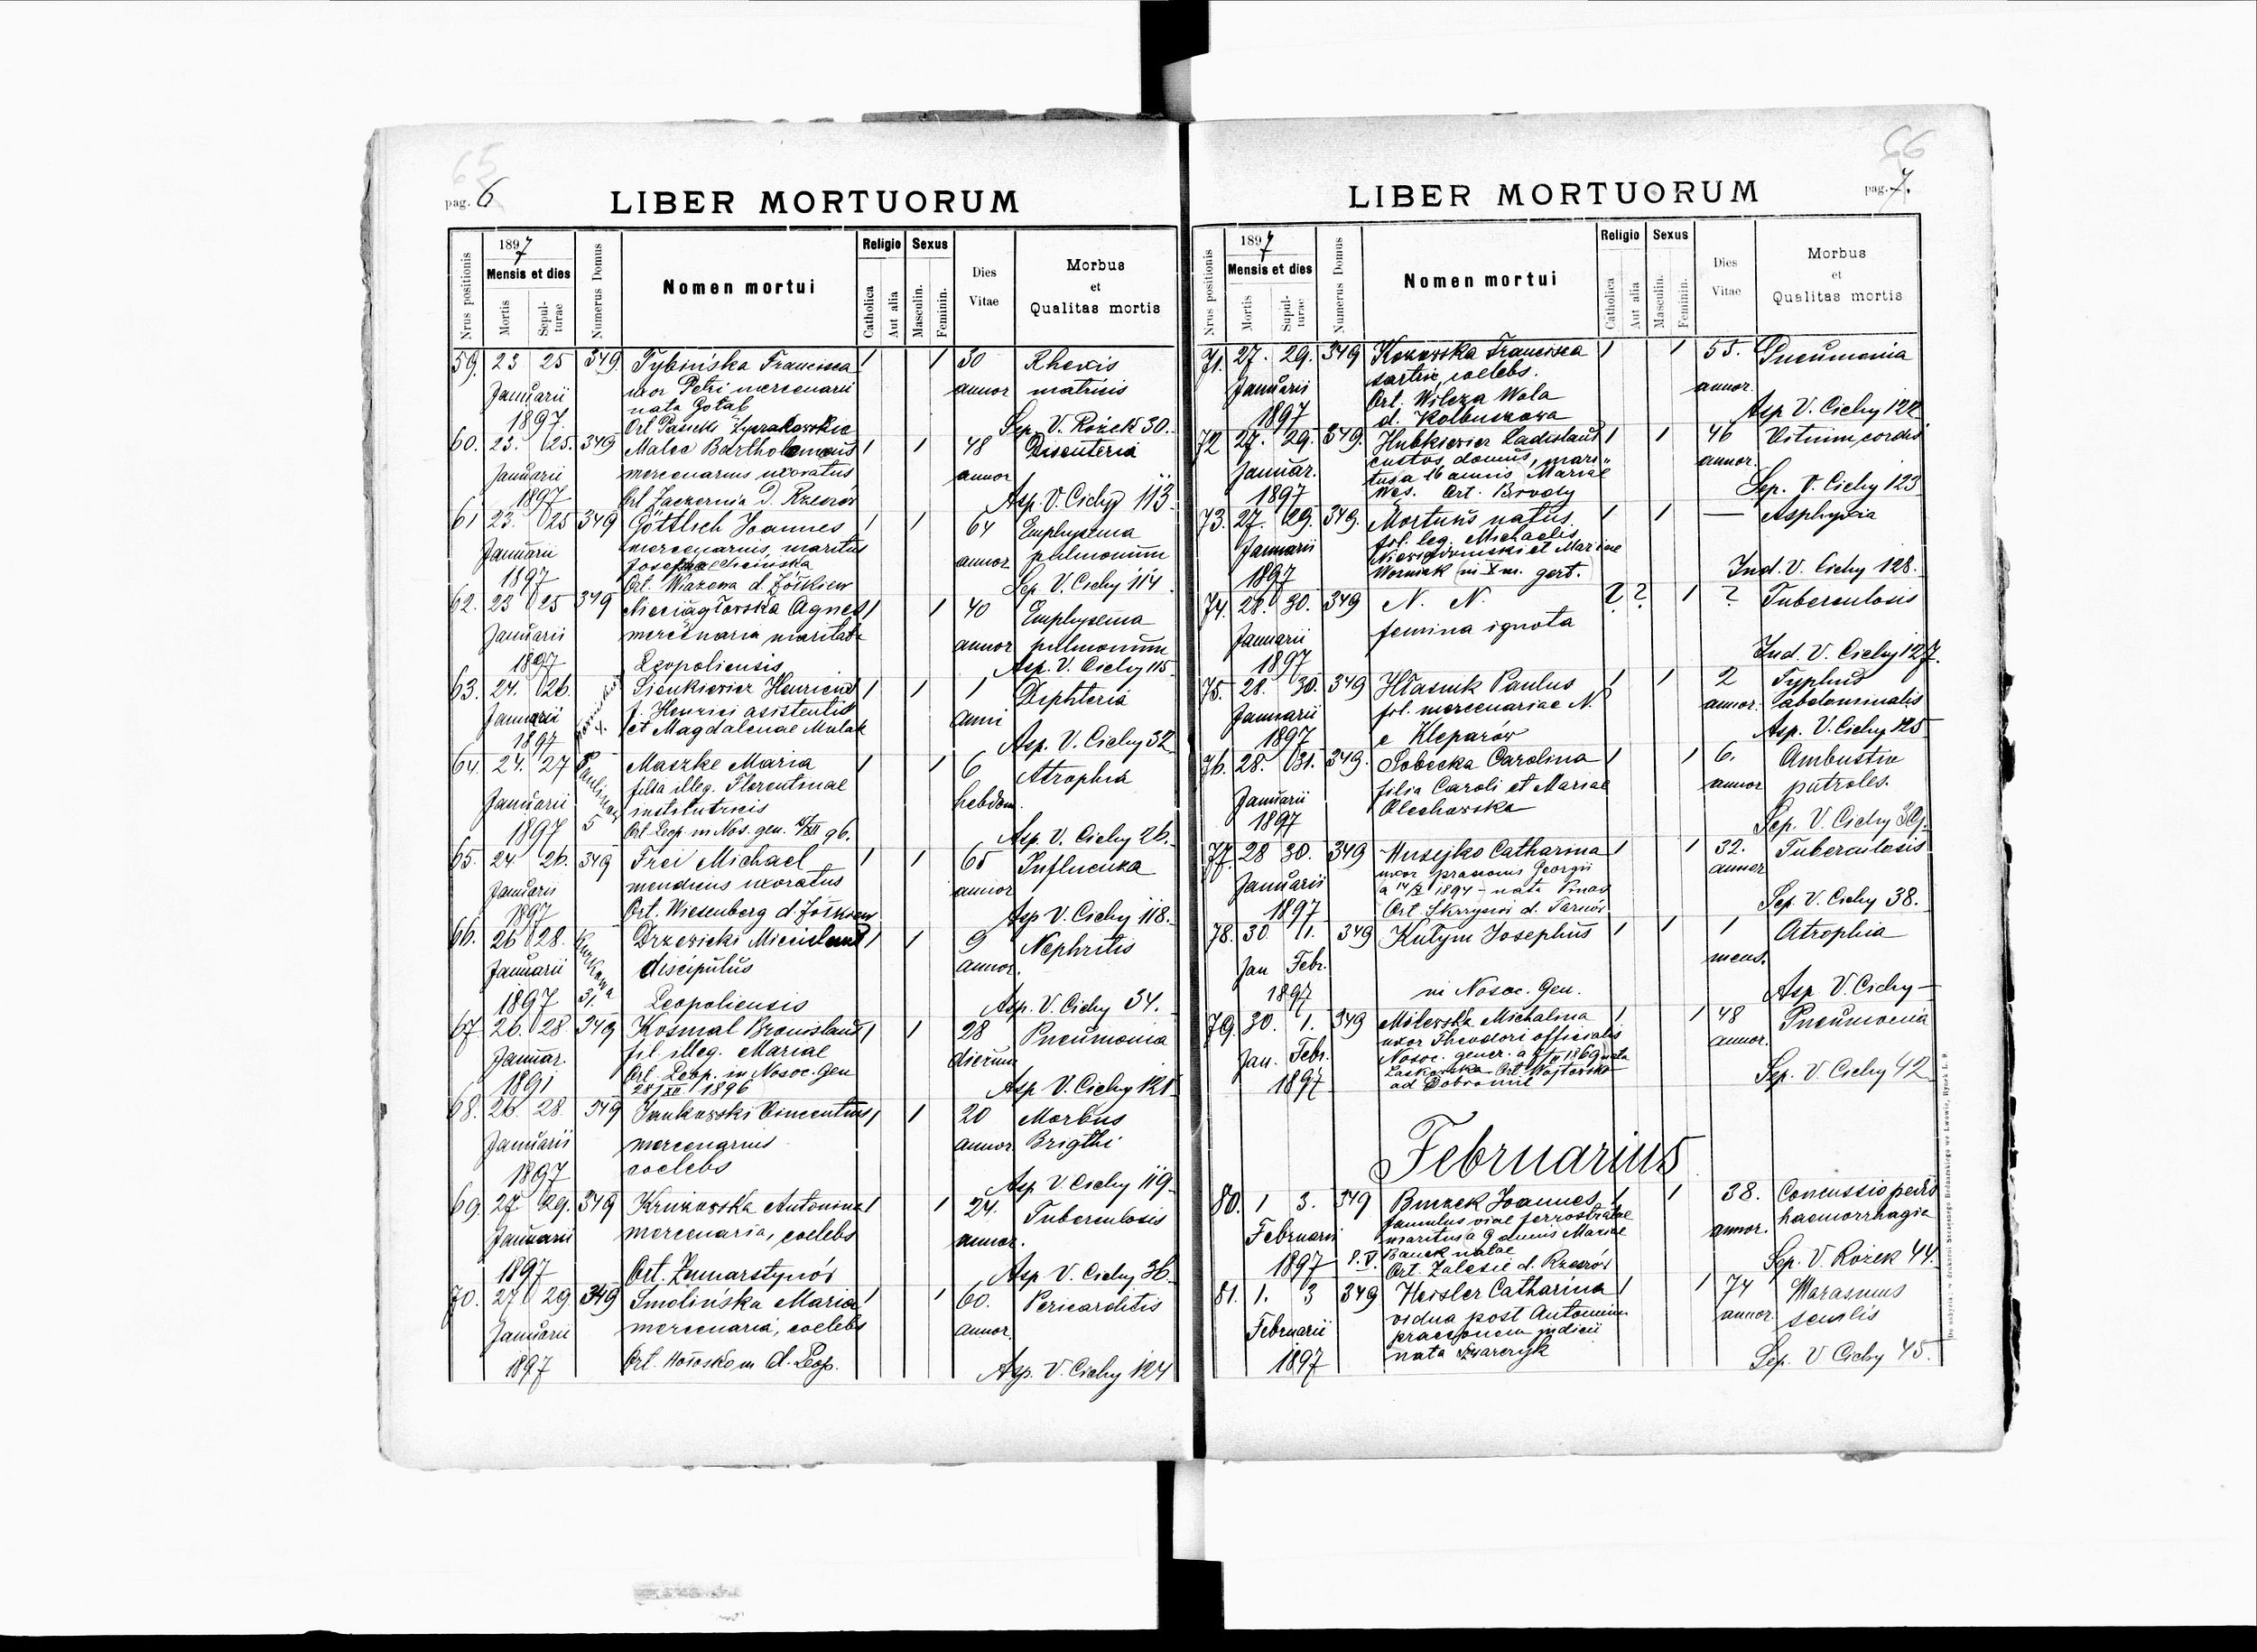 65
pag. 6
LIBER MORTUORUM
Nrus positionis
1897
Mensis et dies
Mortis
Sepulturae
Numerus Domus
Nomen mortui
Religio
Catholica
Aut alia
Sexus
Masculin.
Feminin.
Dies Vitae
Morbus et Qualitas mortis
59. 23 25 349 Tybińska Francisca 1 1 30 Rhexis
Januarii uxor Petri mercenarii annor matricis
nata Gołąb
1897. Ort Pasieki Zyrakowskie Sep. V. Rożek 30.
60. 23. 25. 349 Malec Bartholomaeus 1 1 48 Disenteria
Januarii mercenarius uxoratus annor
1897 Ort Zaczernia D. Rzeszów Asp. V. Cichy 113
61 23. 25 349 Göttlich Joannes 1 1 64 Emphysema
Januarii mercenarius, maritus annor pulmonum
Josephae
1897 Ort. Wiązowa d Żółkiew Sep V. Cichy 114.
62. 23 25 349 Agnes 1 1 40 Emphysema
Januarii mercenaria maritata annor pulmonum
1897 Leopoliensis Asp. V. Cichy 115
63. 24. 26. Sienkiewicz Henricus 1 1 1 Diphteria
Januarii f. Henrici asistentis anni
1897 et Magdalenae Mulak Asp. V. Cichy 32
64. 24. 27 Paulinów 5 Maszke Maria 1 1 6 Atrophia
Januarii filia illeg. Florentinae hebdom.
institutricis
1897 Ort Leop in Nos. gen. XII 96. Asp. V. Cichy 26.
65. 24. 26. 349 Frei Michael 1 1 65 Influenza
Januarii mendicus uxoratus annor
1897 Ort. Wiesenberg d. Żółkiew Asp V. Cichy 118.
66. 26 28. Kurkowa 31. Drzewicki Miecislaus 1 1 9 Nephritis
Januarii discipulus annor.
1897 Leopoliensis Asp. V. Cichy 34.
67. 26. 28 349 Kosmal Bronislaus 1 1 28 Pneumonia
Januar. fil illeg. Mariae dierum
Ort. Leop. in Nosoc. Gen
1897 28/XII 1896 Asp V. Cichy 121
68. 26. 28. 349 Jankowski Vincentius 1 1 20 Morbus
Januarii mercenarius annor. Brigthi
1897 coelebs Asp V Cichy 119
69. 27 29. 349 Antonina 1 1 24. Tuberculosis
Januarii mercenaria, coelebs annor.
1897 Ort. Zamarstynów Asp V. Cichy 36.
70. 27 29. 349 Smolińska Maria 1 1 60. Pericarditis
Januarii mercenaria, coelebs annor.
1897 Ort. d. Leop. Asp. V. Cichy 124
66
pag. 7.
LIBER MORTUORUM
Nrus positionis
1897
Mensis et dies
Mortis
Sepulturae
Numerus Domus
Nomen mortui
Religio
Catholica
Aut alia
Sexus
Masculin.
Feminin.
Dies Vitae
Morbus et Qualitas mortis
71. 27. 29. 349 Francisca 1 1 55. Pneumonia
Januarii sartrix, coelebs. annor.
Ort. Wilcza Wola
1897 d. Kolbuszowa Asp V. Cichy 122
72 27. 29. 349. Ladislaus 1 1 46 Vitium cordis
Januar. custos domus, mari- annor.
tus a 16 annis Mariae
1897 Wes. Ort. Brody Sep. V. Cichy 123
73. 27. 29. 349. Mortuus natus 1 1 — Asphyxia
Januarii fil. leg. Michaelis
et Mariae
1897 Woźniak in X m. gest. Ind. V. Cichy 128.
74. 28. 30. 349 N. N. ? ? 1 ? Tuberculosis
Januarii femina ignota
1897 Ind. V. Cichy 127.
75. 28. 30. 349 Hłasnik Paulus 1 1 2 Typhus
Januarii fil. mercenariae N. annor. abdominalis
1897 e Kleparów Asp. V. Cichy 125
76. 28. 31. 349. Sobecka Carolina 1 1 6. Ambustio
Januarii filia Caroli et Mariae annor
1897 Olechowska Sep. V. Cichy 39.
77. 28 30. 349 Musejko Catharina 1 1 32. Tuberculosis
Januarii uxor Georgii annor
a 1894 - nata
1897 Ort d. Tarnów Sep. V. Cichy 38.
78. 30 1. 349 Kutym Josephus 1 1 1 Atrophia
Jan Febr. mens.
1897 in Nosoc. Gen. Asp V. Cichy —
79. 30. 1. 349 Milewska Michalina 1 1 48 Pneumonia
Jan. Febr. uxor Theodori officialis annor.
Nosoc. gener. a 1869 nata
Ort.
1897 ad Dobromil Sep. V. Cichy 42
Februarius
80. 1 3. 349 Joannes 1 1 38. Concussio pedis
Februarii famulus viae ferrostratae annor. haemorrhagia
maritus a 9 annis Mariae
natae
1897 Ort. Zalesie d. Rzeszów Sep. V. Rożek 44.
81. 1. 3 349 Heisler Catharina 1 1 74 Marasmus
Februarii vidua post Antonium annor. senilis
praeconem judicii
1897 nata Sep. V Cichy 45.